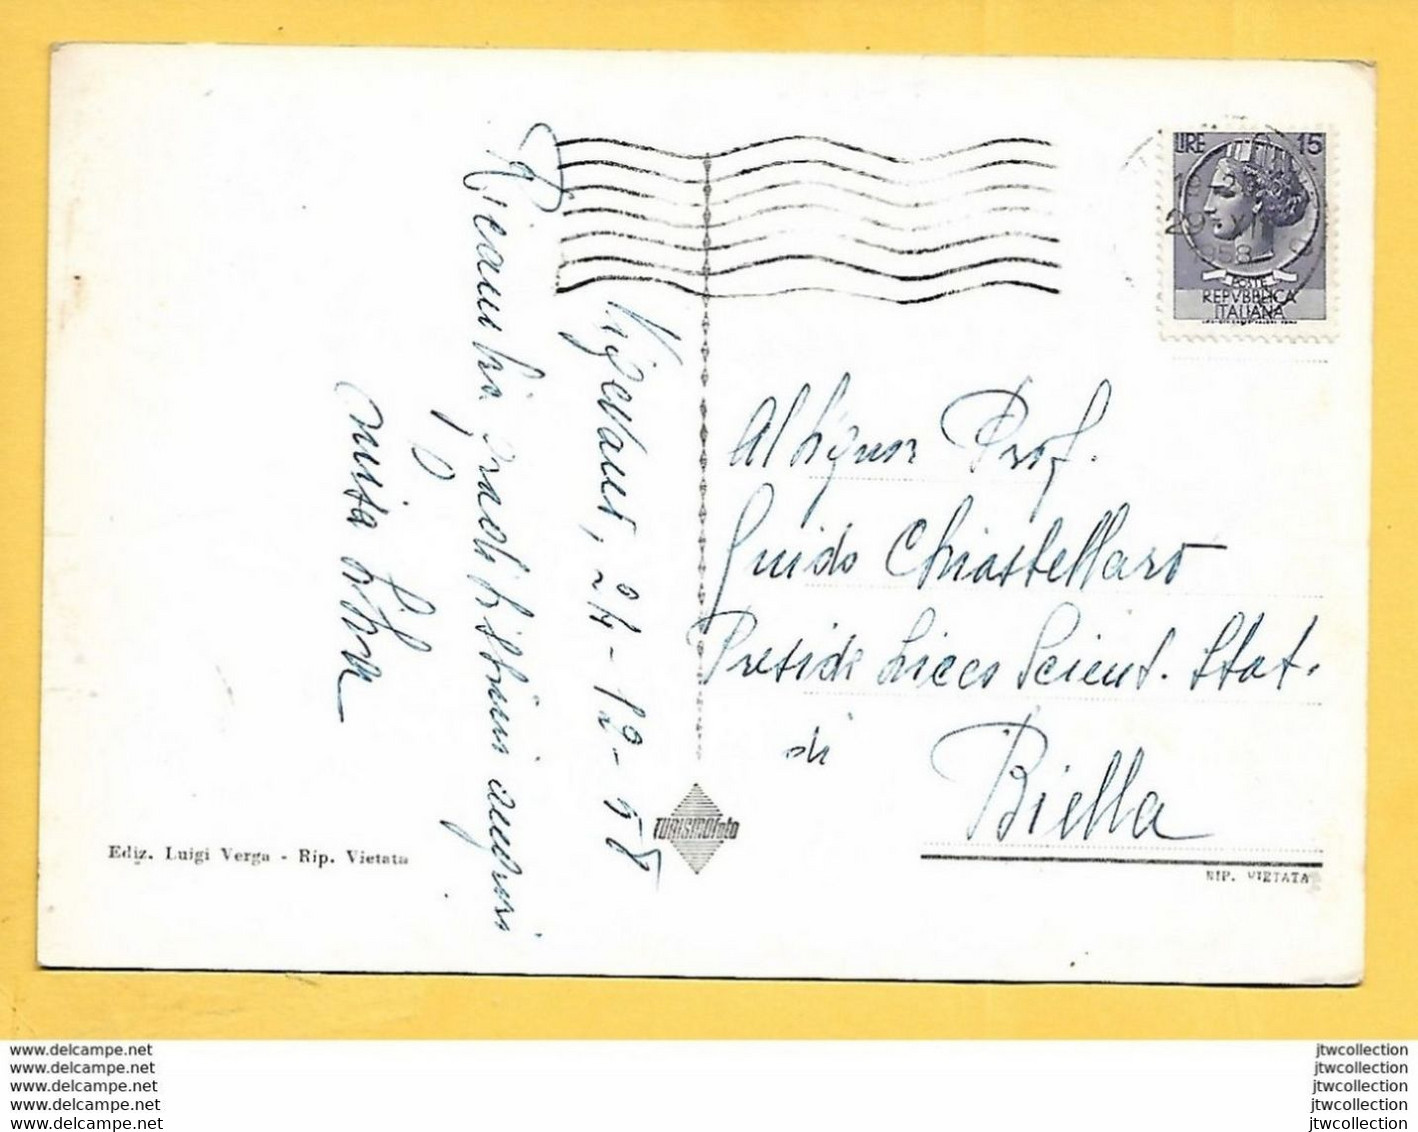 Vigevano, 24-12-58
Ricambio graditissimi auguri
LIRE 15
19
29 XII
1958
POSTE
REPVBBLICA
ITALIANA
Al Signor Prof.
Guido Chiastellaro
Preside Liceo Scient. Stat.
di
Biella
TURISMOfoto
Ediz. Luigi Verga - Rip. Vietata
RIP. VIETATA
www.delcampe.net
www.delcampe.net
www.delcampe.net
www.delcampe.net
www.delcampe.net
jtwcollection
jtwcollection
jtwcollection
jtwcollection
jtwcollection